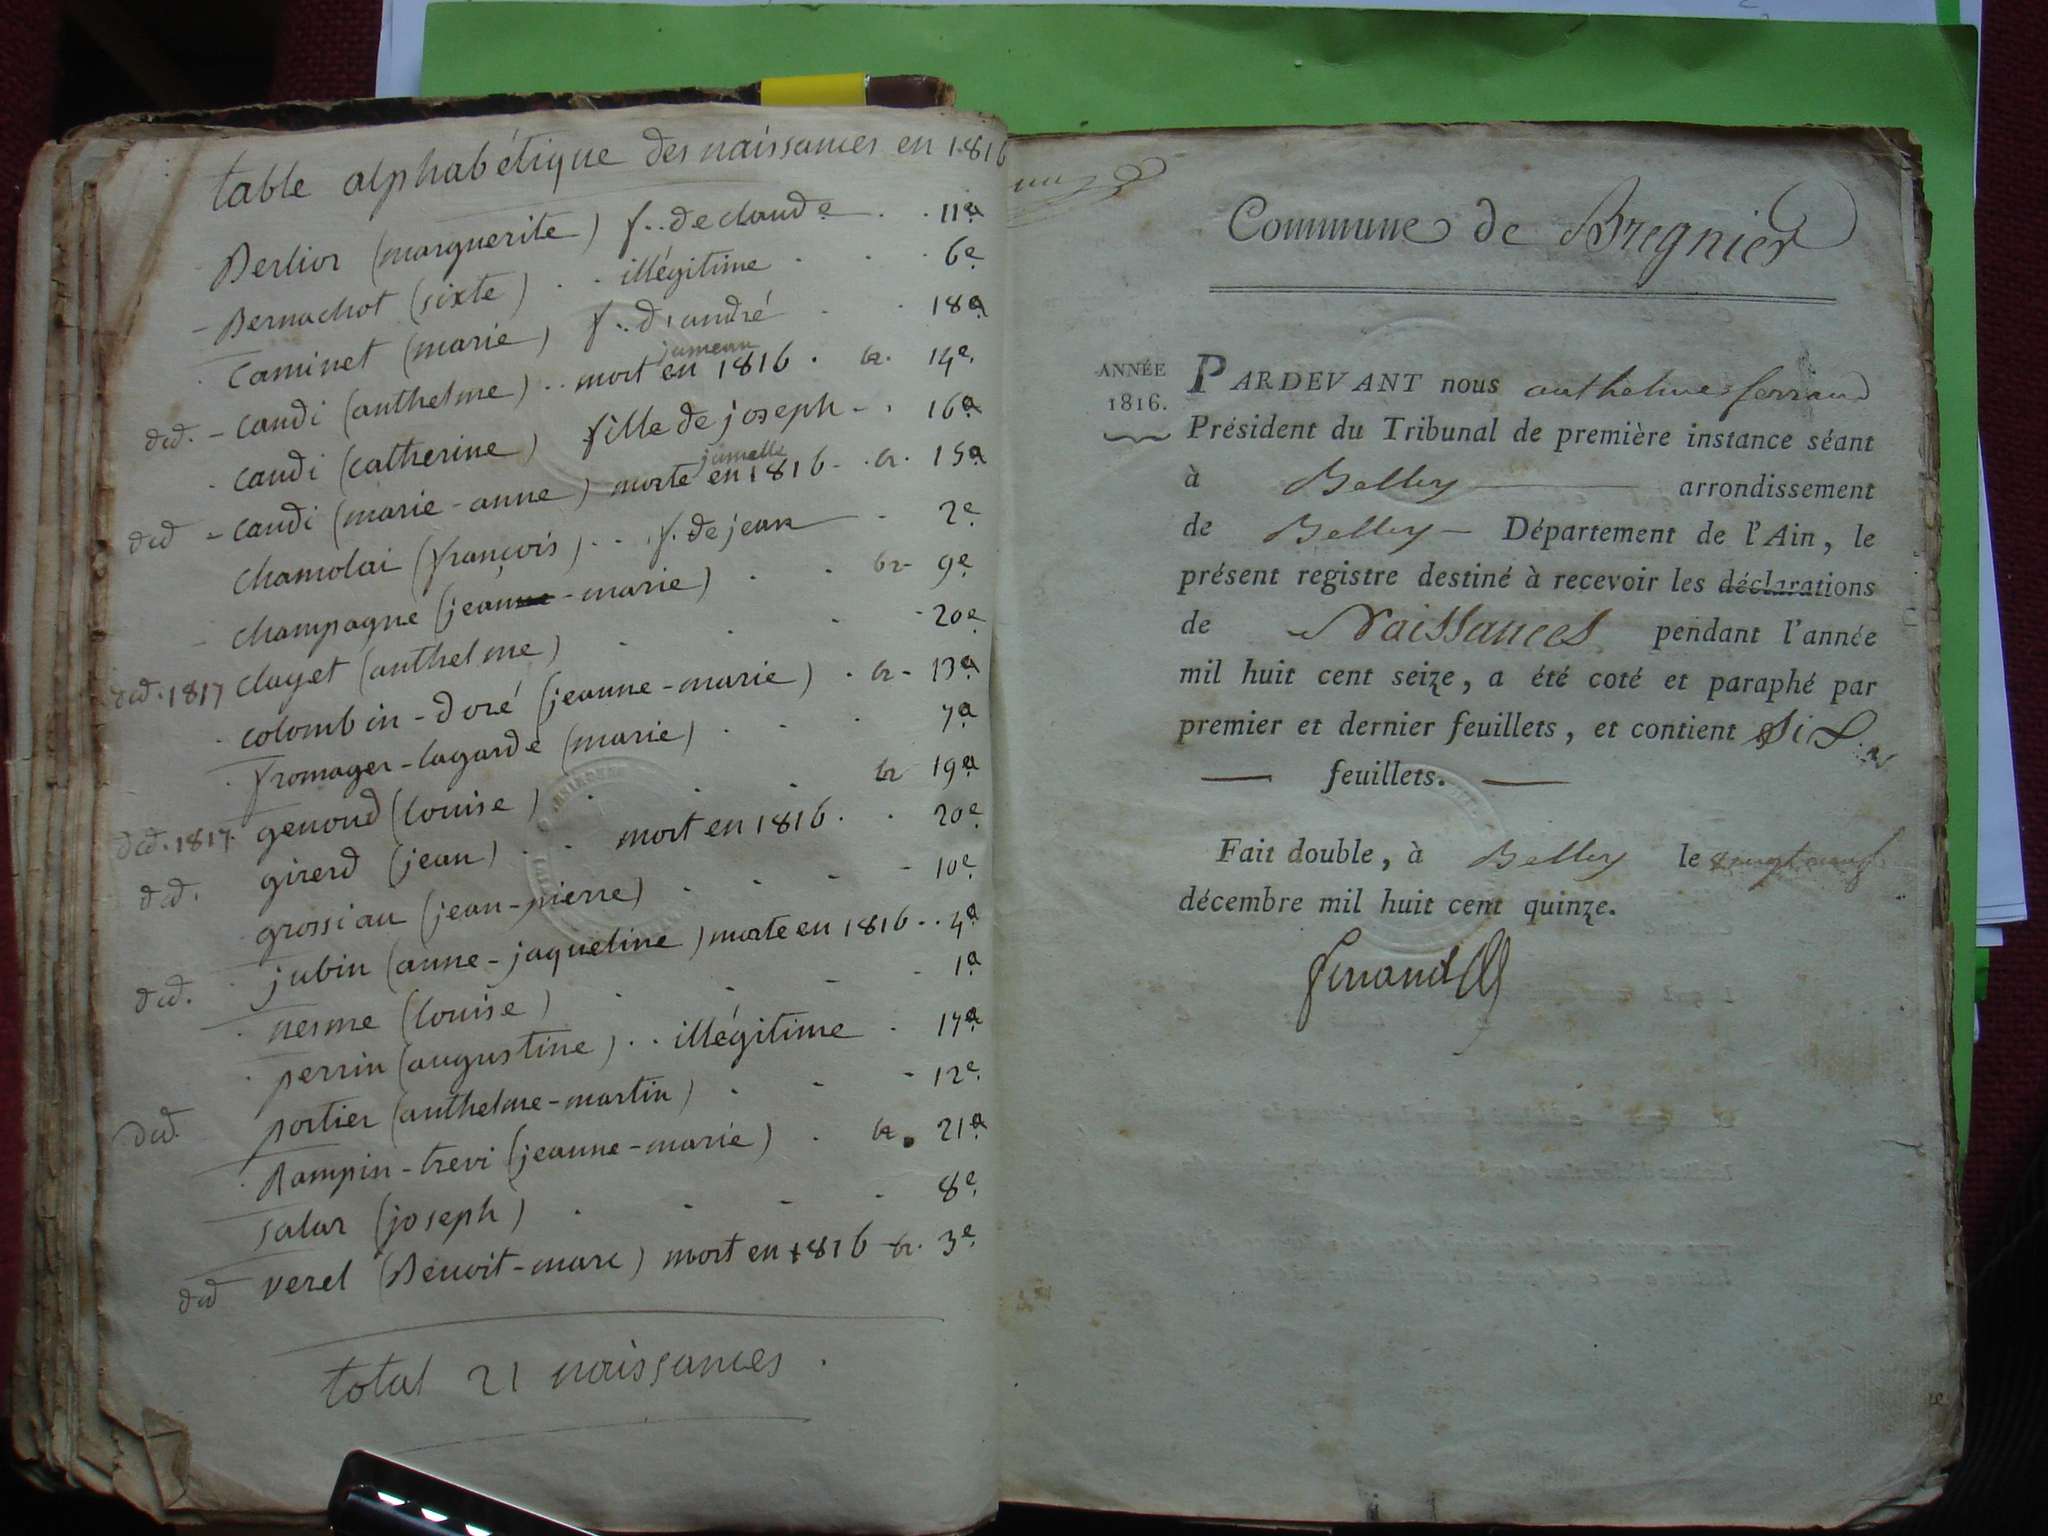 table alphabétique des naissances en 1816
Berlior (marguerite) f.. de claude . . 11e
- Bernachot (sixte) . . illégitime . . . 6e
. caminet (marie) f.. d'andré . . 18e
jumeau
dcd. - caudi (anthelme) .. mort en 1816 . br. 14e
. caudi (catherine) fille de joseph - . 16e
jumelle
dcd - caudi (marie-anne) morte en 1816 - . br. 15e
chamolai (françois) . . . f. de jean - 2e
- champagne (jeanne-marie) . . br- 9e
dcd. 1817 clayet (anthelme) . . . - 20e
. colombin-doré (jeanne-marie) . br- 13e
. fromager-lagarde (marie) . . . 7e
dcd. 1817. genoud (louise) . . . br 19e
dcd. girerd (jean) . . mort en 1816 . . 20e
grossiau (jean-pierre) . . . - 10e
dcd. . jubin (anne-jaqueline) morte en 1816 . . 4e
. nesme (louise) . . . - 1e
. perrin (augustine) . . illégitime - 17e
dcd. portier (anthelme-martin) . - - 12e
. Rampin-trevi (jeanne-marie) . br. 21e
salar (joseph) . . . - 8e
dcd verel (Benoit-marc) mort en 1816 br. 3e
total 21 naissances .
Commune de Bregnier
ANNÉE
1816.
PARDEVANT nous anthelme ferrand
Président du Tribunal de première instance séant
à Belley arrondissement
de Belley - Département de l'Ain, le
présent registre destiné à recevoir les déclarations
de Naissances pendant l'année
mil huit cent seize, a été coté et paraphé par
premier et dernier feuillets, et contient Six
feuillets.
Fait double, à Belley le vingt neuf
décembre mil huit cent quinze.
Ferrand